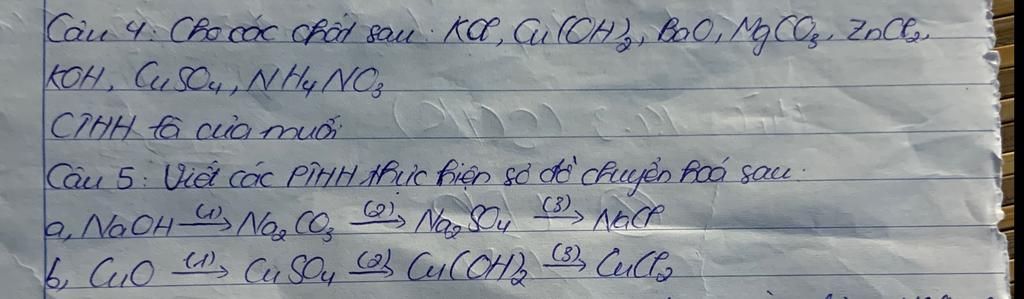 Câu 4: Cho các chất sau: KCl, Cu(OH)₂, BaO, MgCO₃, ZnCl₂,
KOH, CuSO₄, NH₄NO₃
CTHH tà của muối
Câu 5: Viết các PTHH thực hiện sơ đồ chuyển hoá sau:
a, NaOH —(1)→ Na₂CO₃ —(2)→ Na₂SO₄ —(3)→ NaCl
b, CuO —(1)→ CuSO₄ —(2)→ Cu(OH)₂ —(3)→ CuCl₂